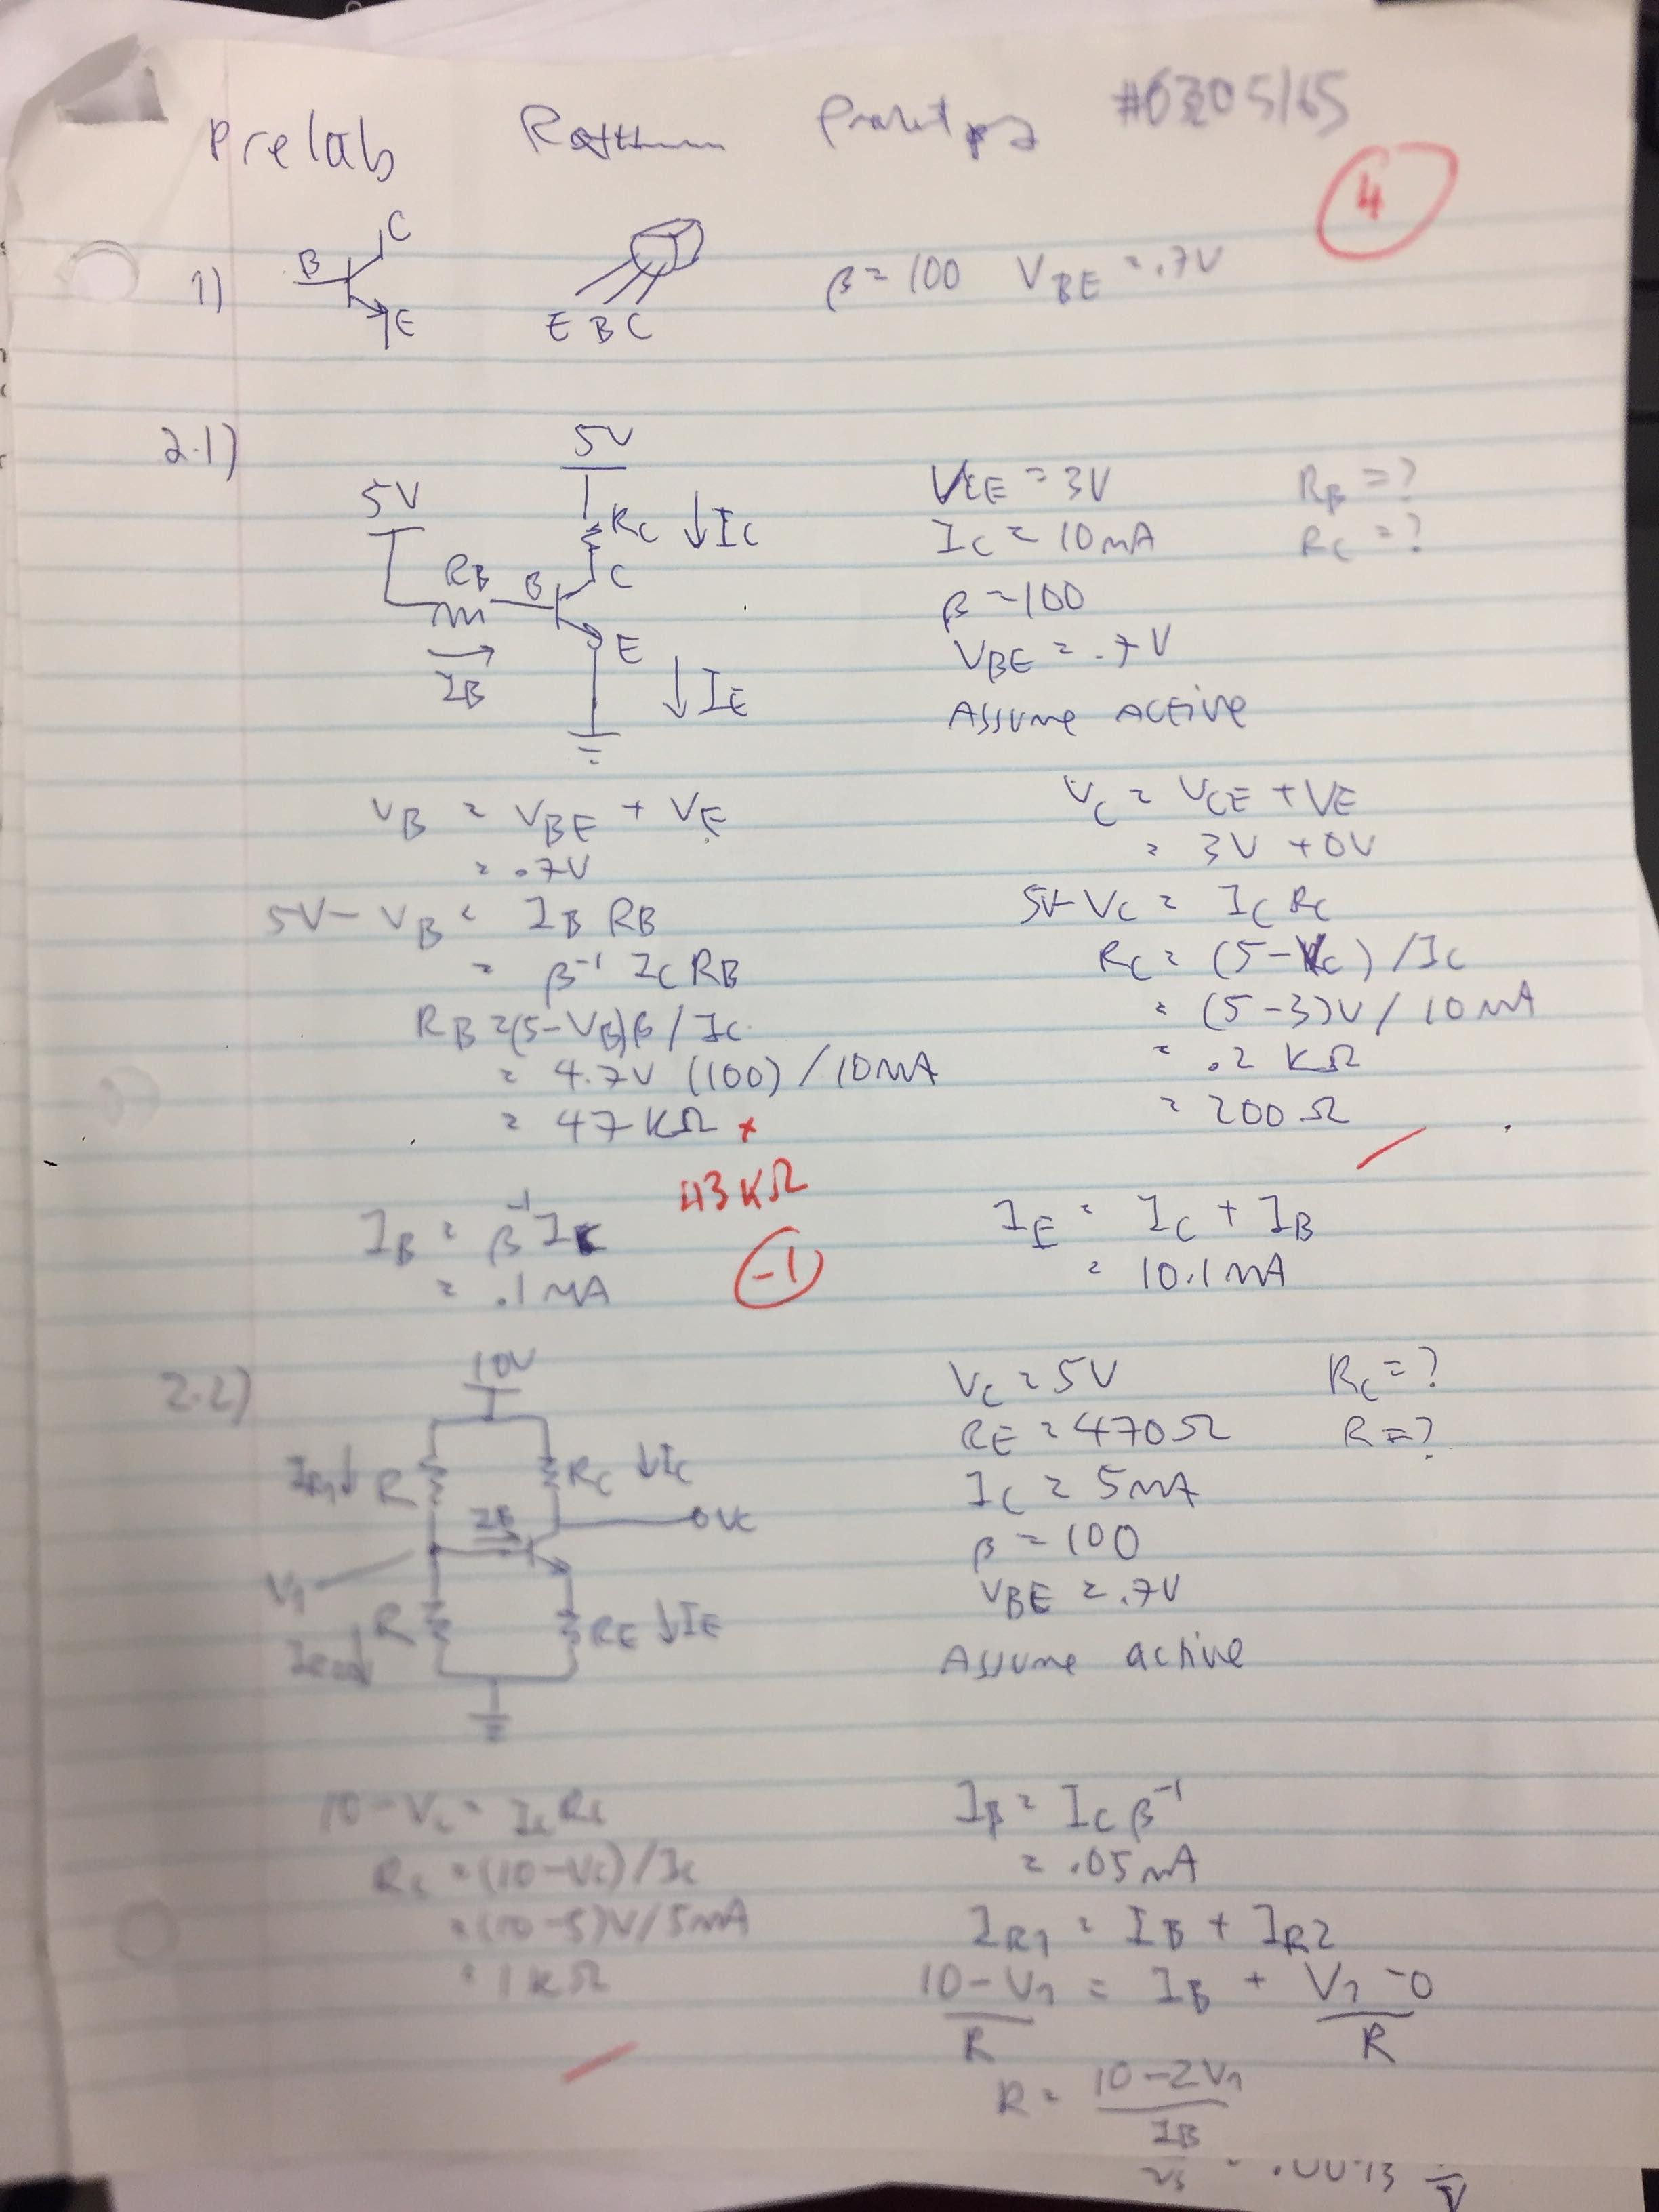 Prelab #6305165
4
1) B C E E B C β = 100 VBE = .7V
2.1) 5V 5V RC ↓IC C RB B IB E ↓IE
VCE = 3V RB = ?
IC = 10mA RC = ?
β = 100
VBE = .7V
Assume active
VB = VBE + VE
= .7V
5V - VB = IB RB
= β⁻¹ IC RB
RB = (5-VB)β / IC
= 4.7V (100) / 10mA
= 47 KΩ ×
43 KΩ
-1
IB = β⁻¹ IC
= .1 mA
VC = VCE + VE
= 3V + 0V
5V - VC = IC RC
RC = (5-VC) / IC
= (5-3)V / 10mA
= .2 KΩ
= 200 Ω
IE = IC + IB
= 10.1mA
2.2) 10V IR1↓ R RC ↓IC IB VC V1 R RE ↓IE
VC = 5V RC = ?
RE = 470Ω R = ?
IC = 5mA
β = 100
VBE = .7V
Assume active
10 - VC = IC RC
RC = (10-VC) / IC
= (10-5)V / 5mA
= 1 KΩ
IB = IC β⁻¹
= .05mA
IR1 = IB + IR2
10 - V1 / R = IB + V1 - 0 / R
R = 10 - 2V1 / IB